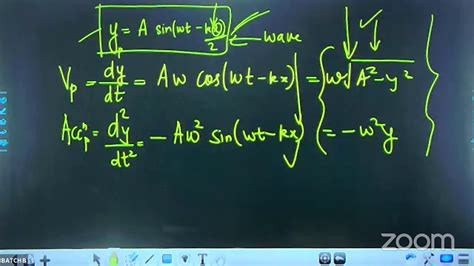 y_p = A sin(wt - kx/2) ← wave
V_p = dy/dt = Aw cos(wt - kx) = w√(A² - y²)
Accⁿ_p = d²y/dt² = - Aw² sin(wt - kx) = -w²y
zoom
BATCH B